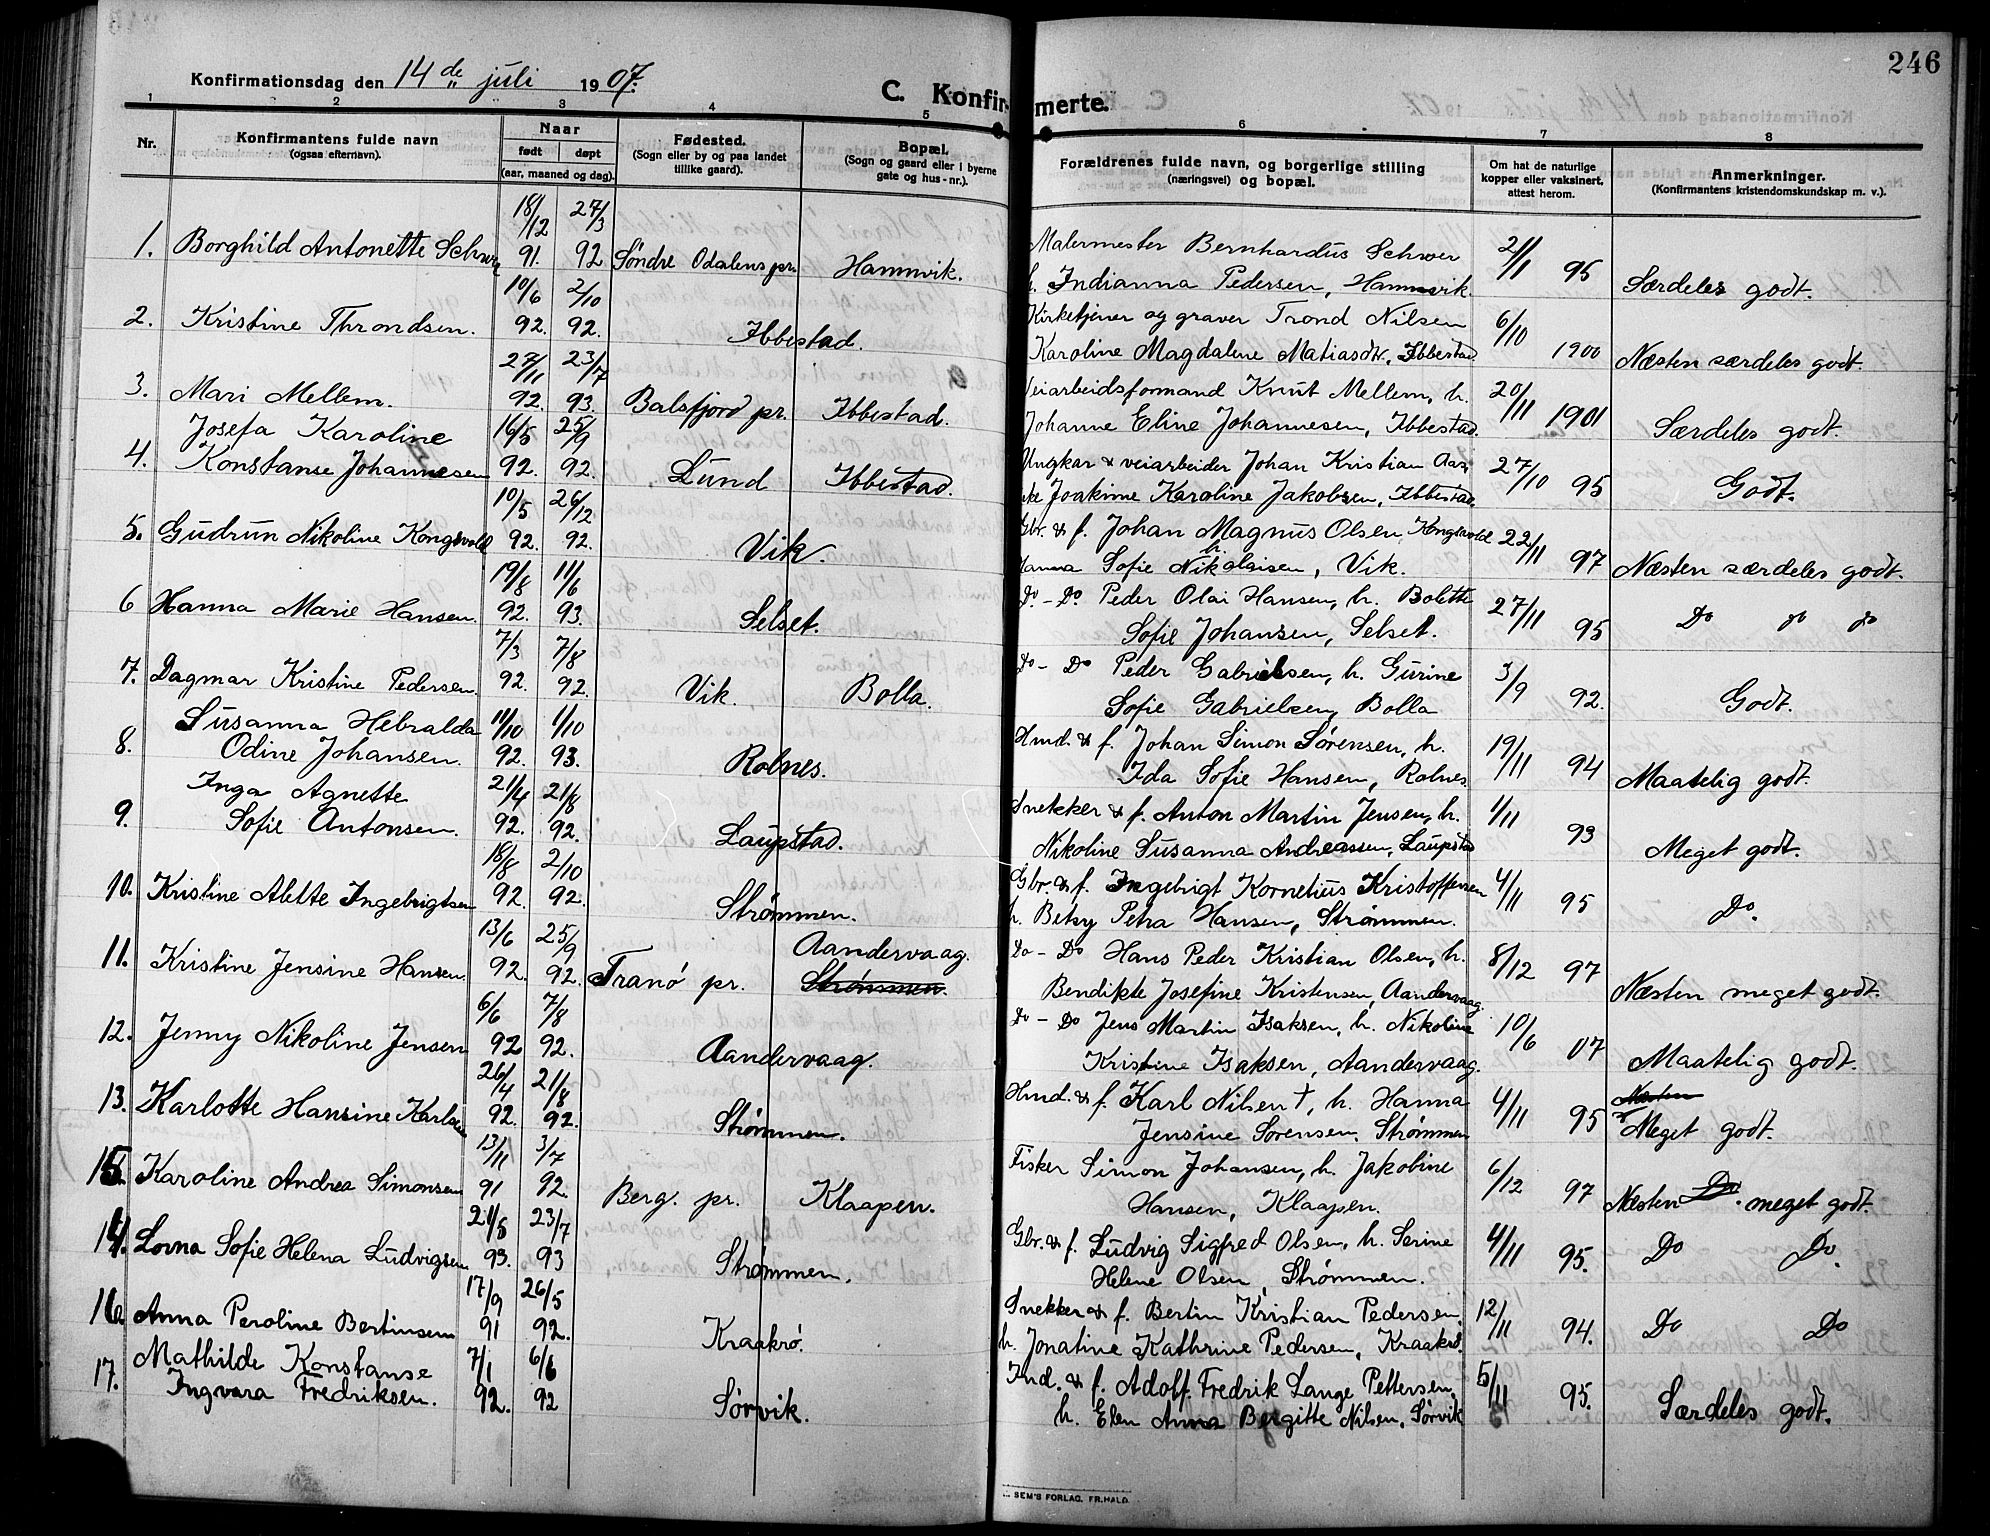 246
Konfirmationsdag den 14de juli 1907.
C. Konfirmerte.
1 2 3 4 5 6 7 8
Nr.
Konfirmantens fulde navn
(ogsaa efternavn).
Naar
født døpt
(aar, maaned og dag).
Fødested.
(Sogn eller by og paa landet
tillike gaard).
Bopæl.
(Sogn og gaard eller i byerne
gate og hus-nr.).
Forældrenes fulde navn, og borgerlige stilling
(næringsvei) og bopæl.
Om hat de naturlige
kopper eller vaksinert,
attest herom.
Anmerkninger.
(Konfirmantens kristendomskundskap m. v.).
18/12 27/3 Malermester Bernhardus Schwer 2/1
1. Borghild Antonette Schwer 91. 92 Søndre Odalens pr. Hamnvik. h. Indianna Pedersen, Hamnvik. 95 Særdeles godt.
10/6 2/10 Kirketjener og graver Trond Nilsen 6/10
2. Kristine Throndsen. 92. 92. Ibbestad. Karoline Magdalene Matiasdtr. Ibbestad 1900 Næsten særdeles godt.
27/11 23/7 Veiarbeidsformand Knut Mellem, h. 20/11
3. Mari Mellem. 92. 93. Balsfjord pr. Ibbestad. Johanne Eline Johannesen, Ibbestad. 1901 Særdeles godt.
Josefa Karoline 16/5 25/9 Ungkar & veiarbeider Johan Kristian 27/10
4. Konstanse Johannesen 92. 92. Lund Ibbestad. Joakime Karoline Jakobsen, Ibbestad. 95 Godt.
10/5 26/12 Gbr. & f. Johan Magnus Olsen Kongsvold 22/11
5. Gudrun Nikoline Kongsvold 92. 92. Vik. h. Hanna Sofie Nikolaisen, Vik. 97 Næsten særdeles godt.
19/8 11/6 Do. - Do. Peder Olai Hansen, h. Bolette 27/11
6 Hanna Marie Hansen. 92. 93. Selset. Sofie Johansen, Selset. 95 Do do do
7/3 7/8 Do - Do Peder Gabrielsen, h. Gurine 3/9
7. Dagmar Kristine Pedersen. 92. 92. Vik. Bolla. Sofie Gabrielsen, Bolla 92. Godt.
Susanna Hebralda 11/10 1/10 Hmd. & f. Johan Simon Sørensen, h. 19/11
8. Odine Johansen. 92. 93. Rolnes. Ida Sofie Hansen, Rolnes. 94 Maatelig godt.
Inga Agnette 21/4 21/8 Snekker & f. Anton Martin Jensen, h. 1/11
9. Sofie Antonsen. 92. 92. Laupstad. Nikoline Susanna Andreassen, Laupstad 93 Meget godt.
18/8 2/10 Gbr. & f. Ingebrigt Kornelius Kristoffersen 4/11
10. Kristine Alette Ingebrigtsen 92. 92. Strømmen. h. Betsy Petra Hansen, Strømmen. 95 Do.
13/6 25/9 Aandervaag. Do - Do Hans Peder Kristian Olsen, h. 8/12
11. Kristine Jensine Hansen. 92. 92. Tranø pr. Strømmen. Bendikte Josefine Kristensen, Aandervaag. 97 Næsten meget godt.
6/6 7/8 Do - Do Jens Martin Isaksen, h. Nikoline 10/6
12. Jenny Nikoline Jensen 92 92. Aandervaag. Kristine Isaksen, Aandervaag. 07 Maatelig godt.
26/4 21/8 Hmd. & f. Karl Nilsen †, h. Hanna 4/11 Næsten
13. Karlotte Hansine Karlsen 92. 92. Strømmen. Jensine Sørensen, Strømmen 95 Meget godt.
13/11 3/7 Fisker Simon Johansen, h. Jakobine 6/12
15. Karoline Andrea Simonsen 91 92. Berg. pr. Klaapen. Hansen, Klaapen. 97 Næsten Do. meget godt.
21/8 23/7 Gbr. & f. Ludvig Sigfred Olsen, h. Serine 4/11
14. Lovna Sofie Helena Ludvigsen 93. 93 Strømmen. Helene Olsen, Strømmen. 95. Do Do.
17/9 26/5 Snekker & f. Bertin Kristian Pedersen, 12/11
16 Anna Peroline Bertinsen 91 92. Kraakrø. h. Jonatine Kathrine Pedersen, Kraakrø. 94. Do Do
Mathilde Konstanse 7/1 6/6 Ind. & f. Adolf Fredrik Lange Pettersen, 5/11
17. Ingvara Fredriksen. 92. 92 Sørvik. h. Elen Anna Bergitte Nilsen, Sørvik 95. Særdeles godt.
SEM'S FORLAG, FR.HALD.